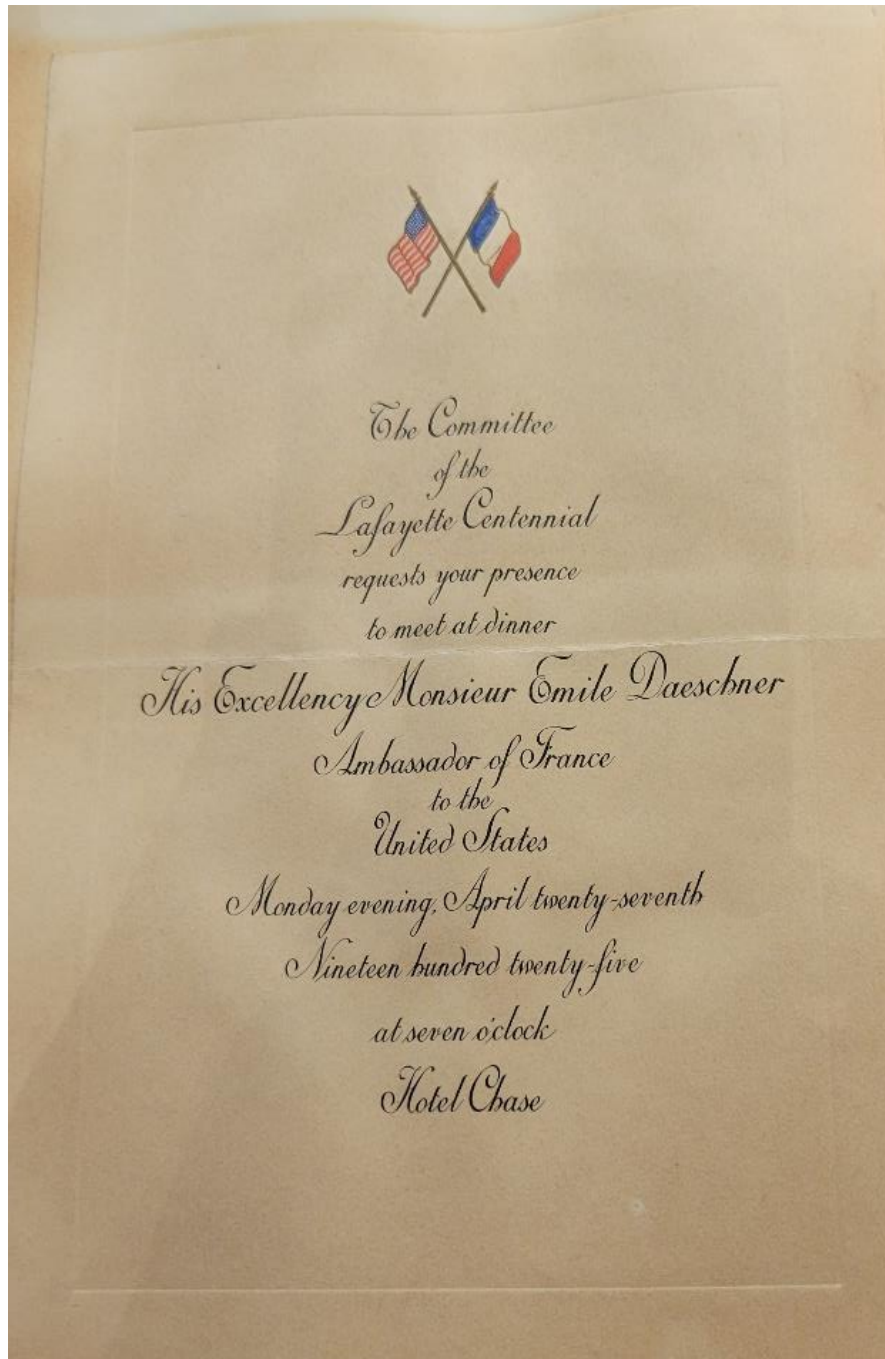 The Committee
of the
Lafayette Centennial
requests your presence
to meet at dinner
His Excellency Monsieur Emile Daeschner
Ambassador of France
to the
United States
Monday evening, April twenty-seventh
Nineteen hundred twenty-five
at seven o'clock
Hotel Chase